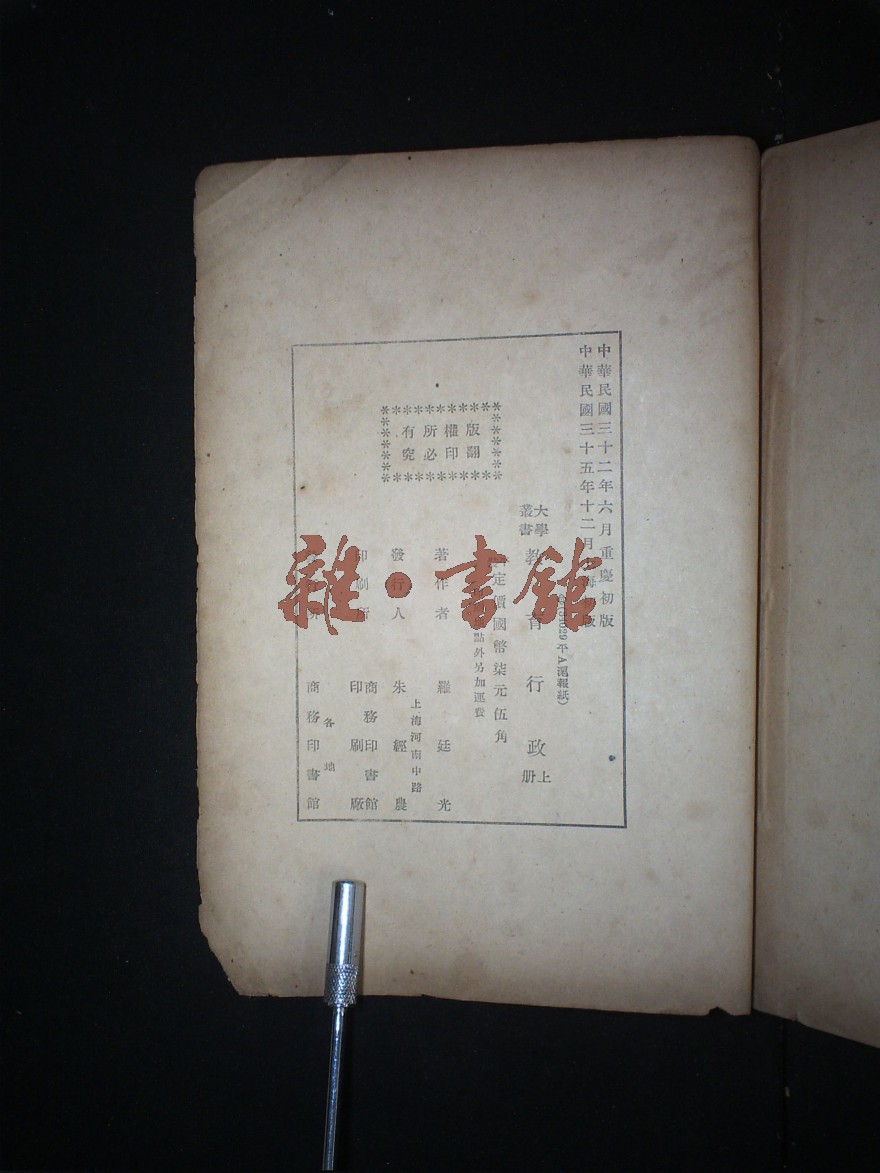 中華民國三十二年六月重慶初版
中華民國三十五年十二月海初版
29 平 A 滬報紙)
大學
叢書
教育行政
上
册
定價國幣柒元伍角
點外另加運費
版權所有
翻印必究
著作者 羅廷光
上海河南中路
發行人 朱經農
印刷所
商務印書館
印刷廠
各地
商務印書館
雜·書館